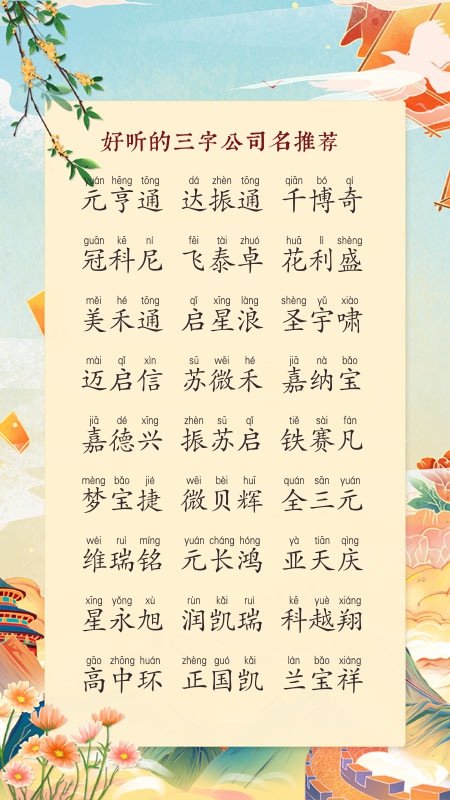 好听的三字公司名推荐
yuán hēng tōng dá zhèn tōng qiān bó qí
元亨通 达振通 千博奇
guān kē ní fēi tài zhuó huā lì shèng
冠科尼 飞泰卓 花利盛
měi hé tōng qǐ xīng làng shèng yǔ xiào
美禾通 启星浪 圣宇啸
mài qǐ xìn sū wēi hé jiā nà bǎo
迈启信 苏微禾 嘉纳宝
jiā dé xīng zhèn sū qǐ tiě sài fán
嘉德兴 振苏启 铁赛凡
mèng bǎo jié wēi bèi huī quán sān yuán
梦宝捷 微贝辉 全三元
wéi ruì míng yuán cháng hóng yà tiān qìng
维瑞铭 元长鸿 亚天庆
xīng yǒng xù rùn kǎi ruì kē yuè xiáng
星永旭 润凯瑞 科越翔
gāo zhōng huán zhèng guó kǎi lán bǎo xiáng
高中环 正国凯 兰宝祥